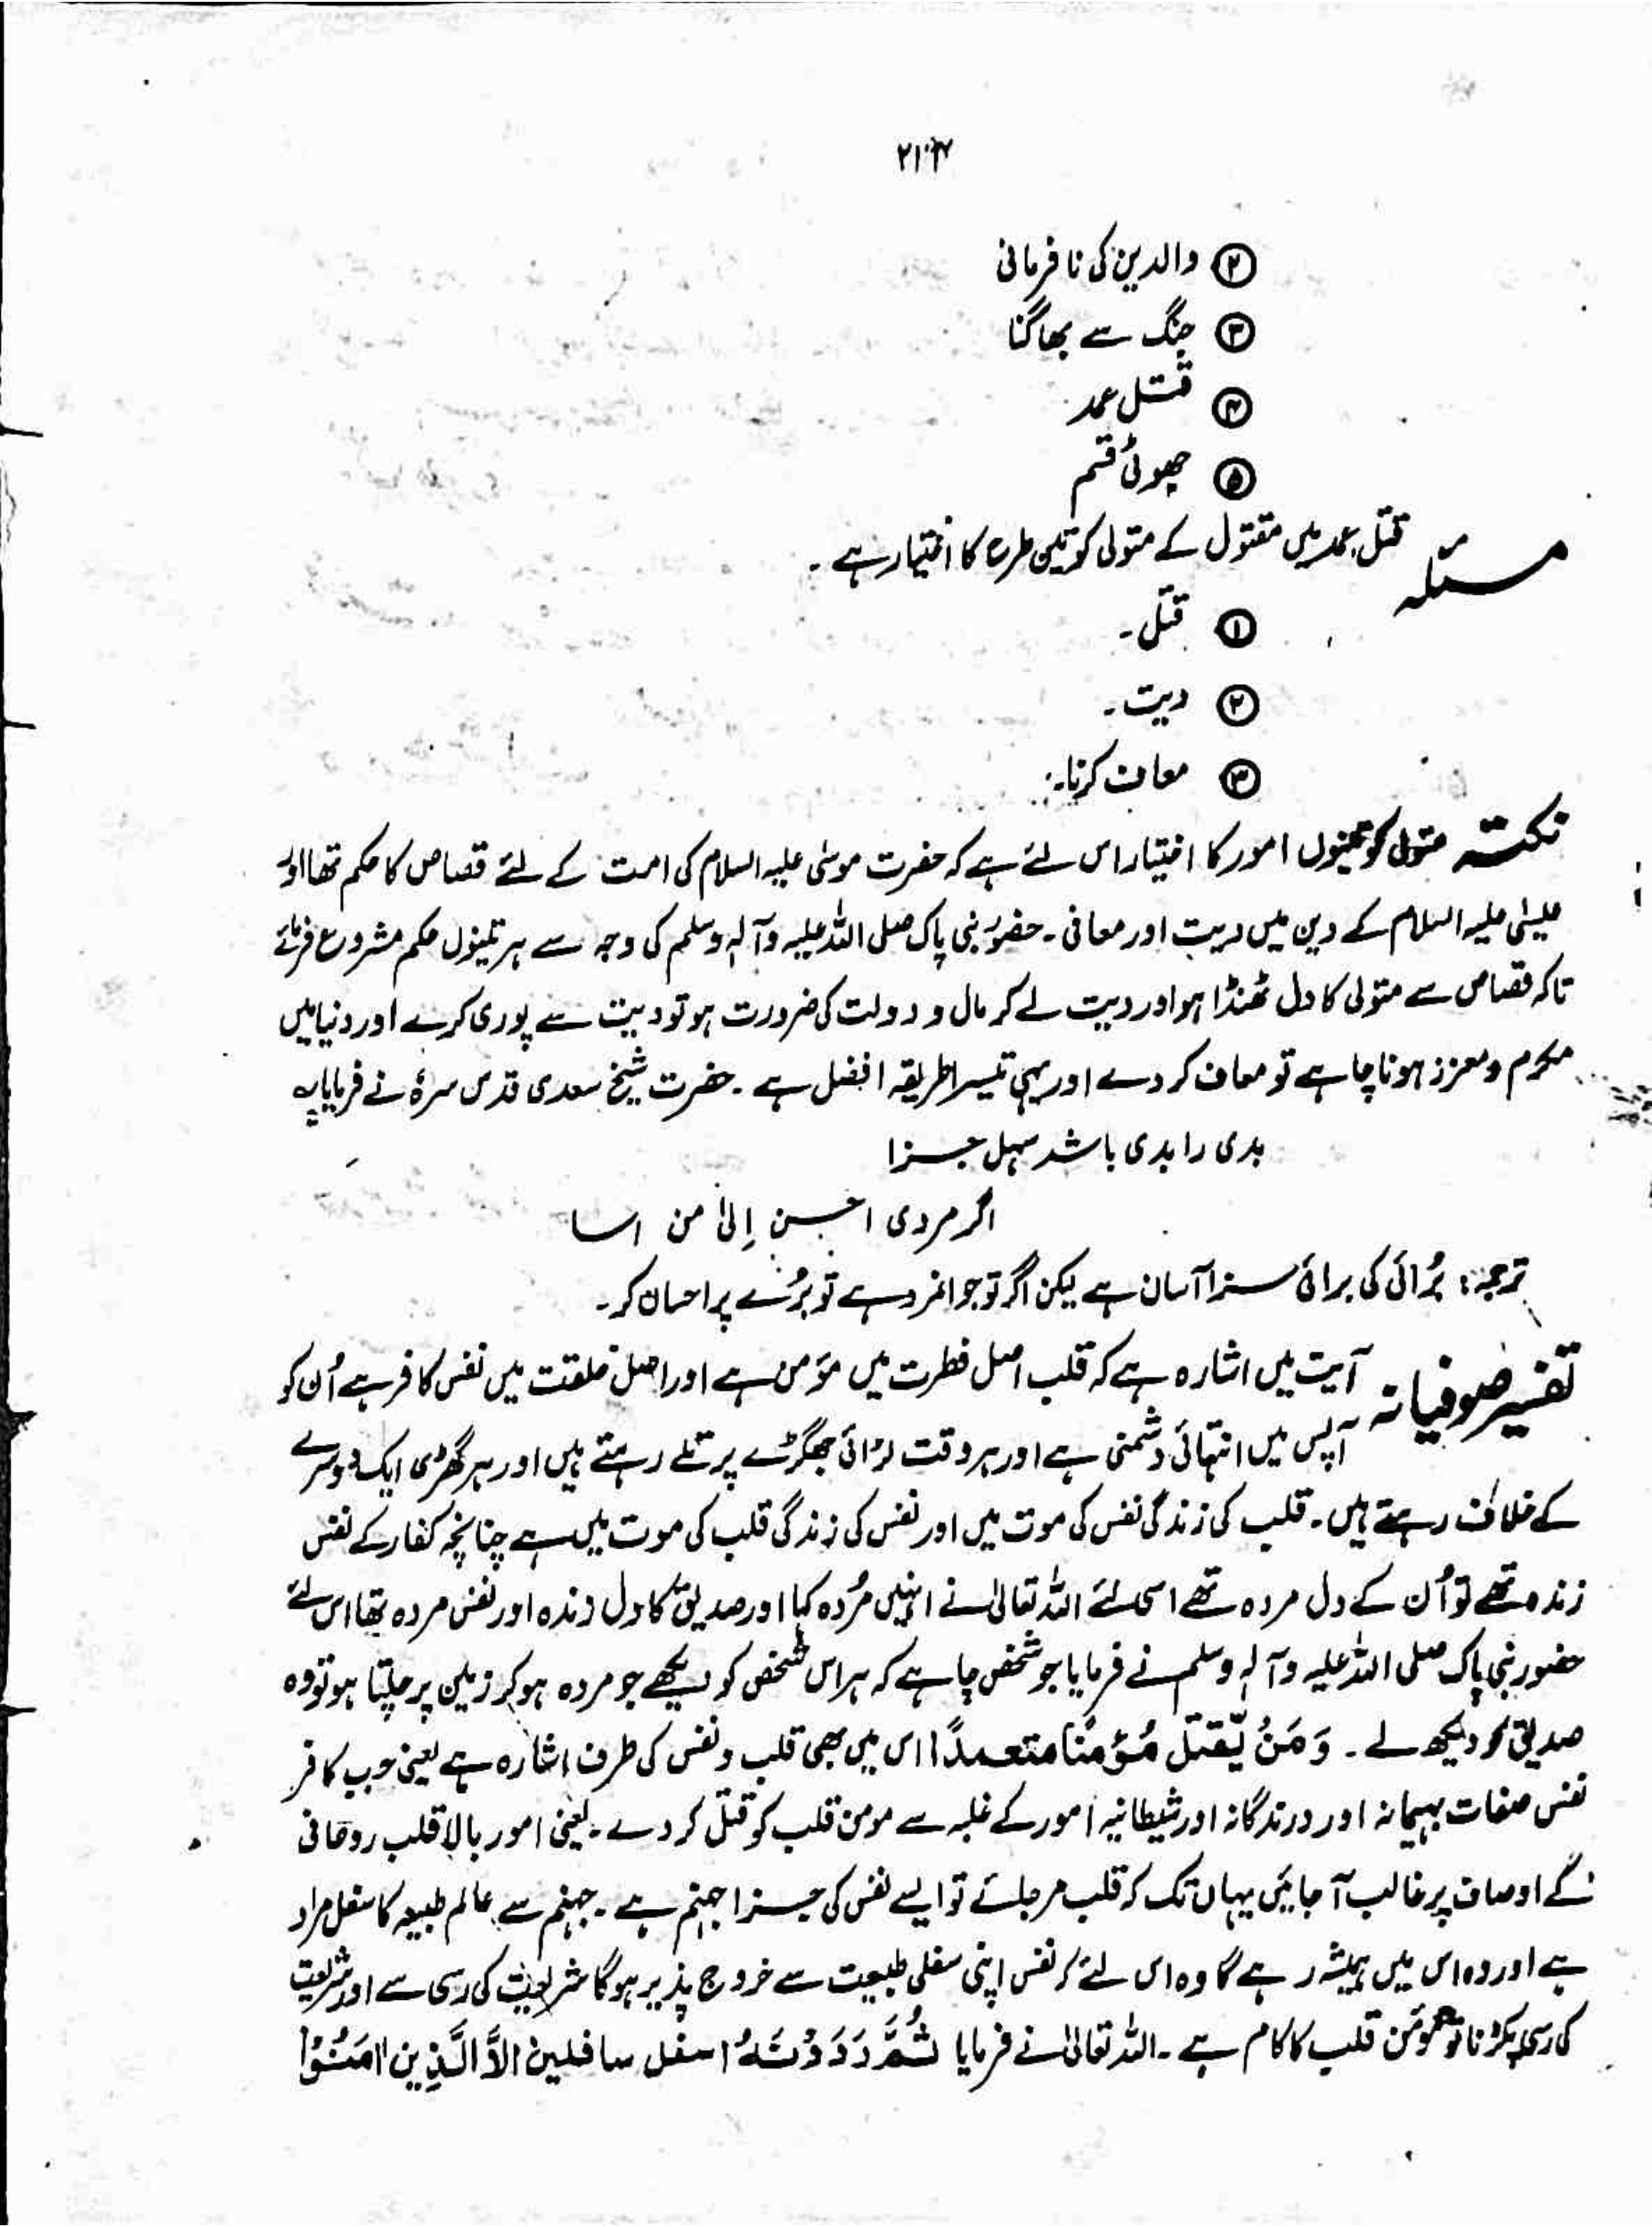 ② والدین کی نافرمانی
③ جنگ سے بھاگنا
④ قتل عمد
⑤ جھوٹی قسم
مسئلہ قتل عمد میں مقتول کے متولی کو تین طرح کا اختیار ہے ۔
① قتل ۔
② دیت ۔
③ معاف کرنا ۔
نکتہ متولی کو تینوں امور کا اختیار اس لئے ہے کہ حضرت موسیٰ علیہ السلام کی امت کے لئے قصاص کا حکم تھا اور
عیسیٰ علیہ السلام کے دین میں دیت اور معافی ۔ حضور نبی پاک صلی اللہ علیہ وآلہ وسلم کی وجہ سے ہر تینوں حکم مشروع فرمائے
تاکہ قصاص سے متولی کا دل ٹھنڈا ہو اور دیت لے کر مال و دولت کی ضرورت ہو تو دیت سے پوری کرے اور دنیا میں
مکرم و معزز ہونا چاہے تو معاف کر دے اور یہی تیسرا طریقہ افضل ہے ۔ حضرت شیخ سعدی قدس سرہٗ نے فرمایا ؎
بدی را بدی باشد سہل جزا
اگر مردی احسن إلیٰ من اسا
ترجمہ : بُرائی کی برائی سزا آسان ہے لیکن اگر تو جوانمرد ہے تو بُرے پر احسان کر ۔
تفسیر صوفیانہ آیت میں اشارہ ہے کہ قلب اصل فطرت میں مؤمن ہے اور اصل خلقت میں نفس کافر ہے اُن کو
آپس میں انتہائی دشمنی ہے اور ہر وقت لڑائی جھگڑے پر تلے رہتے ہیں اور ہر گھڑی ایک دوسرے
کے خلاف رہتے ہیں ۔ قلب کی زندگی نفس کی موت میں اور نفس کی زندگی قلب کی موت میں ہے چنانچہ کفار کے نفس
زندہ تھے تو اُن کے دل مردہ تھے اسی لئے اللہ تعالیٰ نے انہیں مُردہ کہا اور صدیق کا دل زندہ اور نفس مردہ تھا اس لئے
حضور نبی پاک صلی اللہ علیہ وآلہ وسلم نے فرمایا جو شخص چاہے کہ ہر اس شخص کو دیکھے جو مردہ ہو کر زمین پر چلتا ہو تو وہ
صدیق کو دیکھ لے ۔ وَ مَنْ یَّقتل مُؤمنًا متعمدًا اس میں بھی قلب و نفس کی طرف اشارہ ہے یعنی جب کافر
نفس صفات بہیمانہ اور درندگانہ اور شیطانیہ امور کے غلبہ سے مومن قلب کو قتل کر دے ۔ یعنی امور بالا قلب روحانی
کے اوصاف پر غالب آ جائیں یہاں تک کہ قلب مر جائے تو ایسے نفس کی جزا جہنم ہے ۔ جہنم سے عالم طبیعہ کا سفل مراد
ہے اور وہ اس میں ہمیشہ رہے گا وہ اس لئے کہ نفس اپنی سفلی طبیعت سے خروج پذیر ہوگا شریعت کی رسی سے اور شریعت
کی رسی پکڑنا تو مؤمن قلب کا کام ہے ۔ اللہ تعالیٰ نے فرمایا ثُمَّ رَدَدْنٰہُ اسفل سافلین الاَّ الَّذِین اٰمَنُوْا